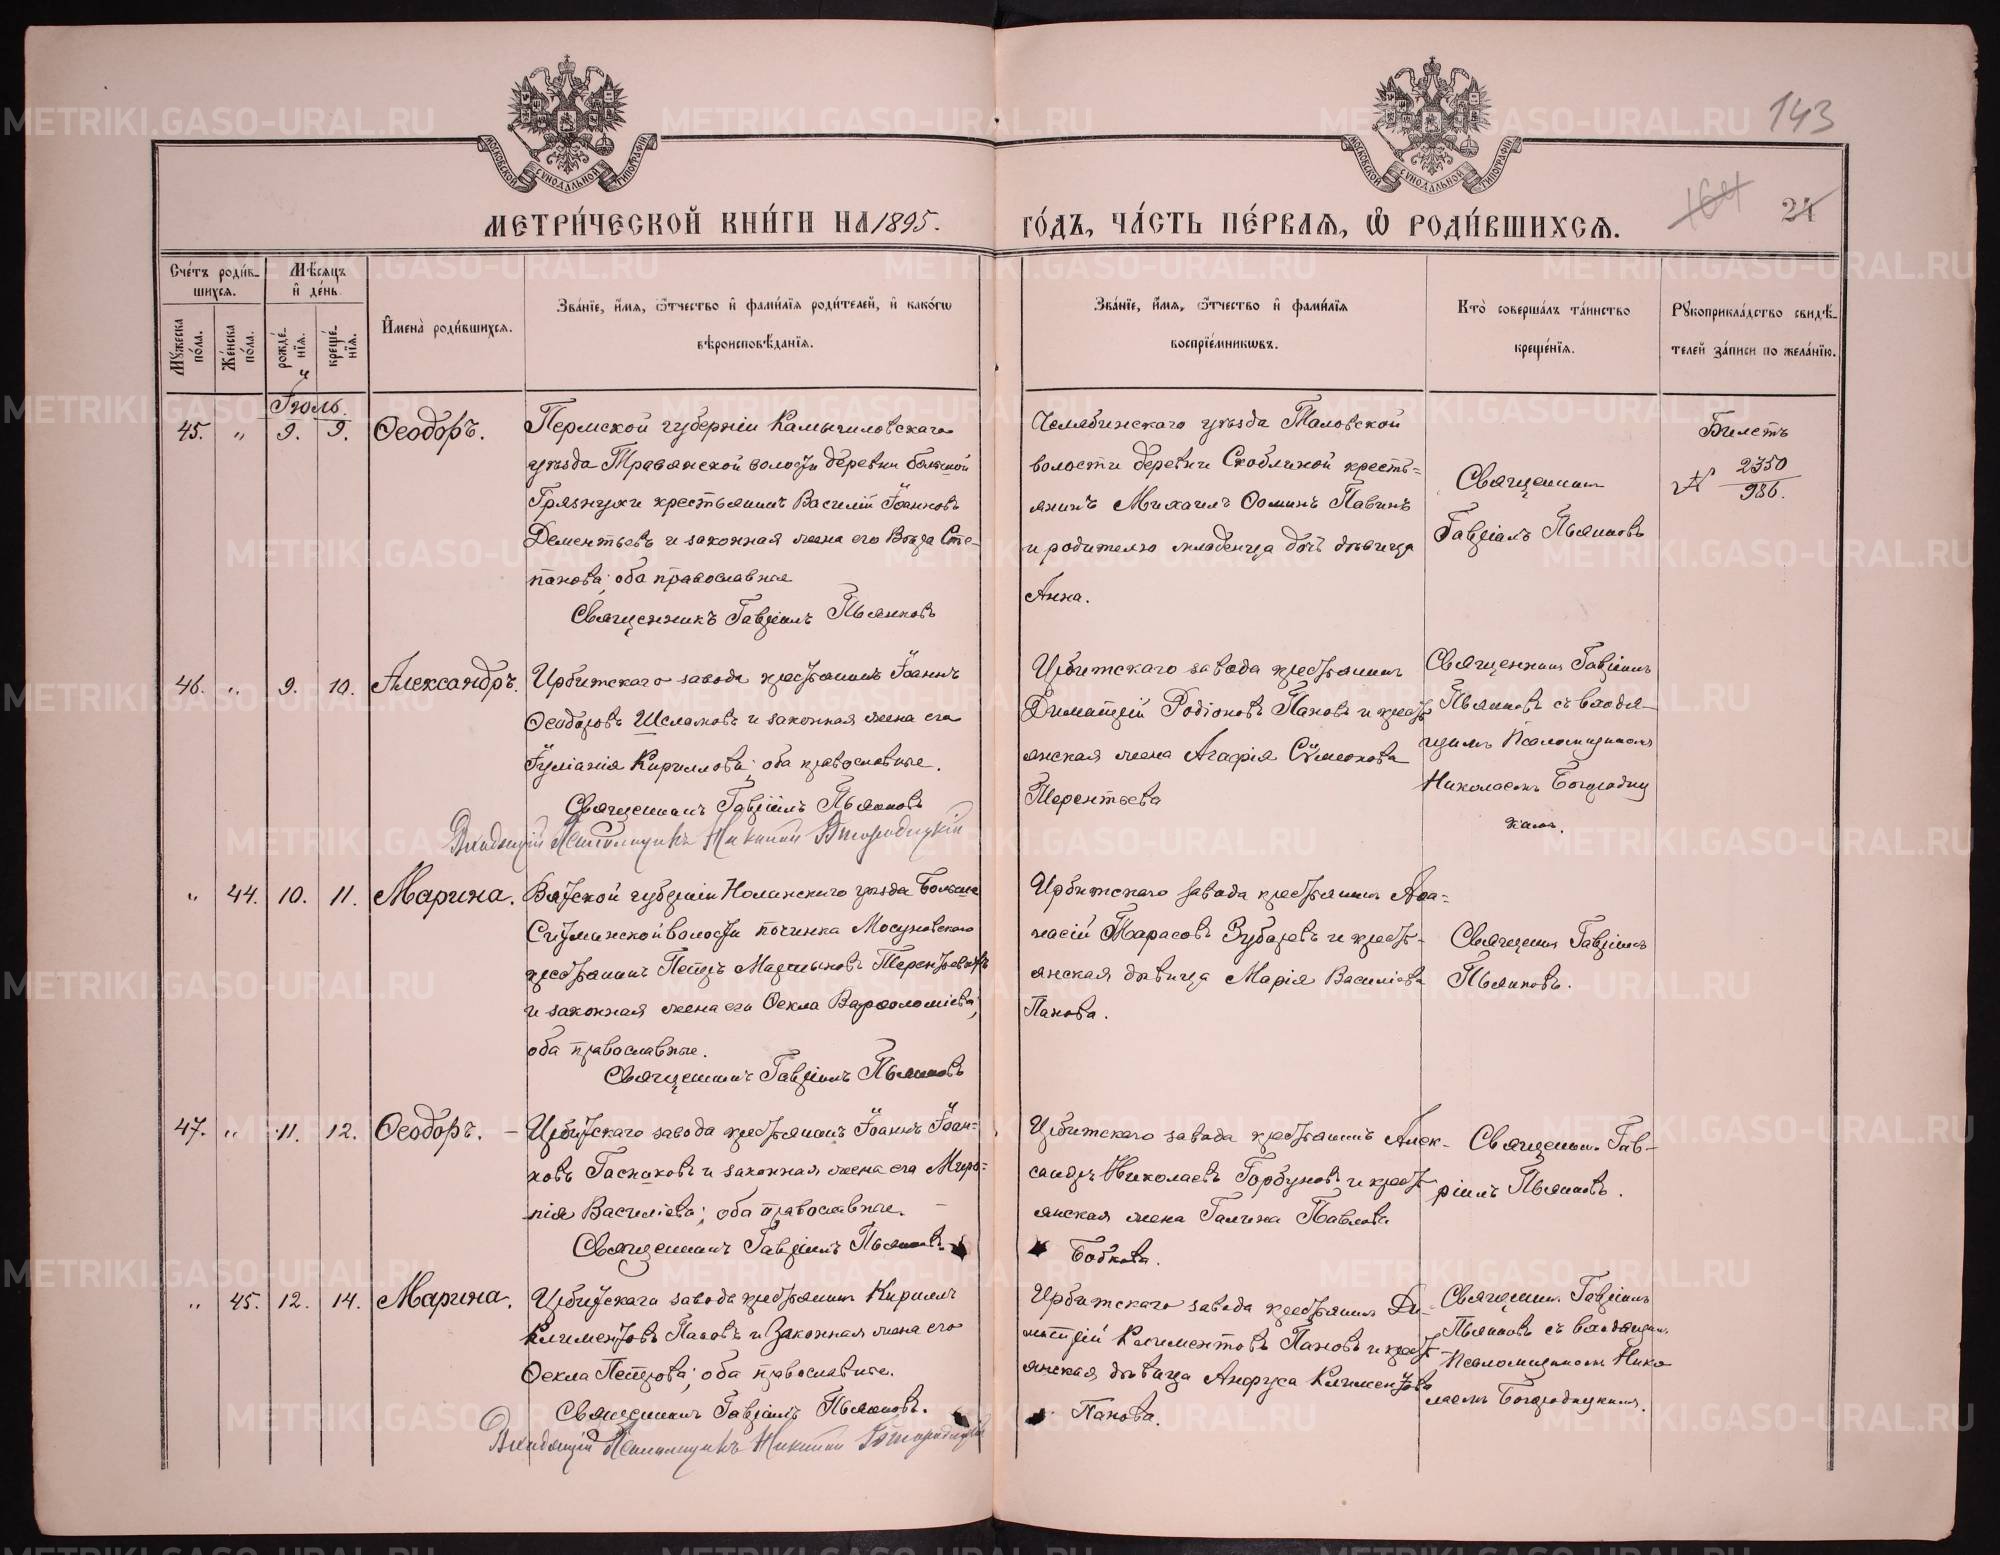 143
164 24
МОСКОВСКОЙ СѴНОДАЛЬНОЙ ТИПОГРАФІИ
МОСКОВСКОЙ СѴНОДАЛЬНОЙ ТИПОГРАФІИ
МЕТРИ́ЧЕСКОЙ КНИ́ГИ НА 1895.
ГО́ДЪ, ЧА́СТЬ ПЕ́РВАѦ, Ѡ҆ РОДИ́ВШИХСѦ.
Сче́тъ роди́в-
шихсѧ.
Мꙋ́жеска по́ла.
Же́нска по́ла.
Мѣ́сѧцъ
и҆ де́нь
рожде́-
нїѧ.
креще́-
нїѧ.
И҆мена̀ роди́вшихсѧ.
Зва́нїе, и҆́мѧ, ѻ҆́тчество и҆ фами́лїѧ роди́телей, и҆ како́гѡ
вѣроисповѣ́данїѧ.
Зва́нїе, и҆́мѧ, ѻ҆́тчество и҆ фами́лїѧ
воспрїе́мникѡвъ.
Кто̀ соверша́лъ та́инство
креще́нїѧ.
Рꙋкоприкла́дство свидѣ́-
телей за́писи по жела́нїю.
Іюль.
45. „ 9. 9. Ѳеодоръ.
Пермской губерніи Камышловскаго
уѣзда Травянской волости деревни Большой
Грязнухи крестьянинъ Василій Іоанновъ
Дементьевъ и законная жена его Сте-
панова; оба православные
Священникъ Гавріилъ Пьянковъ
Челябинскаго уѣзда Таловской
волости деревни Скоблиной кресть-
янинъ Михаилъ Ѳоминъ Павинъ
и родителю младенца дочь дѣвица
Анна.
Священникъ
Гавріилъ Пьянковъ
Билетъ
№ 2350
986.
46. „ 9. 10. Александръ.
Ирбитскаго завода крестьянинъ Іоаннъ
Ѳеодоровъ Шеламовъ и законная жена его
Іуліанія Кириллова; оба православные.
Священникъ Гавріилъ Пьянковъ
Псаломщикъ
Ирбитскаго завода крестьянинъ
Димитрій Родіоновъ Пановъ и кресть
янская жена Агафія Сѵмеонова
Терентьева
Священникъ Гавріилъ
Пьянковъ съ
щимъ Псаломщикомъ
Николаемъ Богородиц
кимъ.
„ 44. 10. 11. Марина.
Вятской губерніи Нолинскаго уѣзда Больше
Ситминской волости починка Мосуновскаго
крестьянинъ Петръ Мартыновъ Терентьевъ
и законная жена его Ѳекла Варѳоломіева;
оба православные.
Священникъ Гавріилъ Пьянковъ
Ирбитскаго завода крестьянинъ Аѳа-
насій Тарасовъ Зубаревъ и кресть-
янская дѣвица Марія Василіева
Панова.
Священник Гавріилъ
Пьянковъ.
47. „ 11. 12. Ѳеодоръ.
Ирбитскаго завода крестьянинъ Іоаннъ Іоан-
новъ и законная жена его Миро-
пія Василіева; оба православные.
Священникъ Гавріилъ Пьянковъ
Ирбитскаго завода крестьянинъ Алек-
сандръ Николаевъ Горбуновъ и кресть
янская жена Галина Павлова
Бобкова.
Священник. Гав-
ріилъ Пьянковъ.
„ 45. 12. 14. Марина.
Ирбитскаго завода крестьянинъ Кириллъ
Климентовъ Пановъ и законная жена его
Ѳекла Петрова; оба православные.
Священникъ Гавріилъ Пьянковъ.
Псаломщикъ
Ирбитскаго завода крестьянинъ Ди-
митрій Климентовъ Пановъ и кресть
янская дѣвица Анфуса Климентова
Панова.
Священник. Гавріилъ
Пьянковъ съ
Псаломщикомъ Нико
лаемъ Богородицкимъ.
METRIKI.GASO-URAL.RU